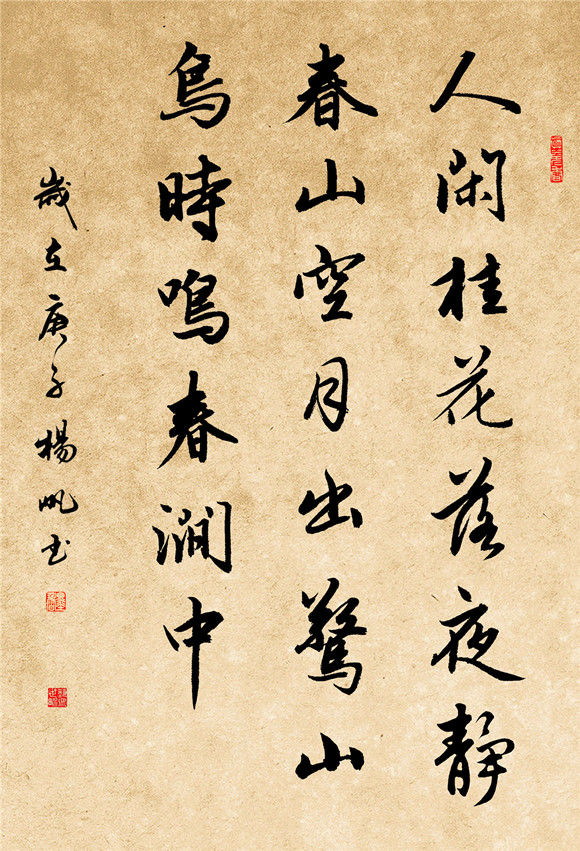 人閑桂花落夜靜
春山空月出驚山
鳥時鳴春澗中
歲在庚子楊帆書